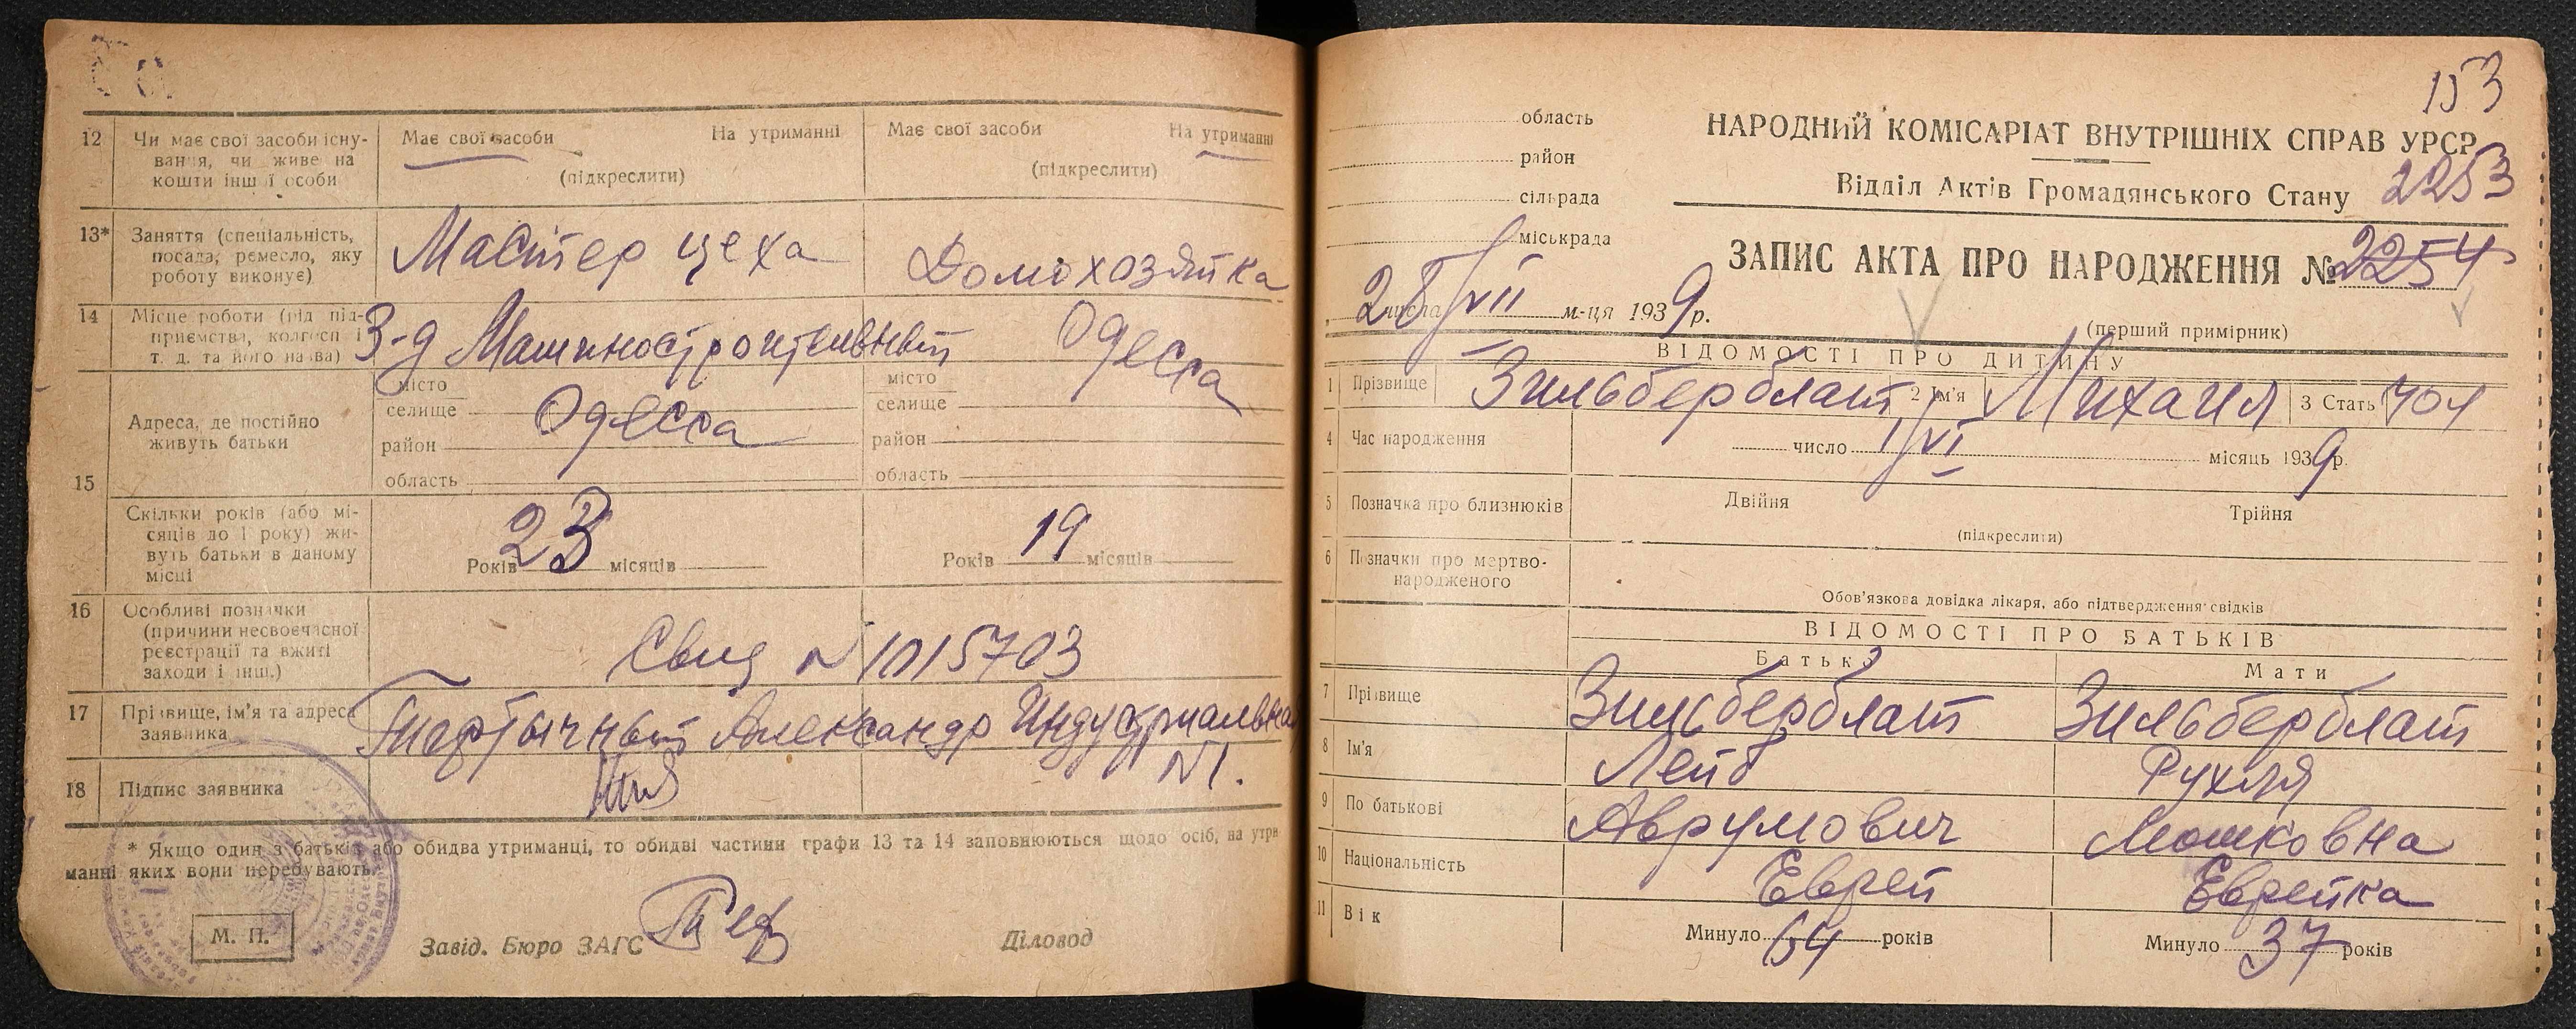 12 Чи має свої засоби існу-
вання, чи живе на
кошти іншої особи
Має свої засоби На утриманні
(підкреслити)
Має свої засоби На утриманні
(підкреслити)
13* Заняття (спеціальність,
посада, ремесло, яку
роботу виконує)
Мастер цеха
Домохозяйка
14 Місце роботи (рід під-
приємства, колгосп і
т. д. та його назва)
З-д Машиностроительный
Одесса
15 Адреса, де постійно
живуть батьки
місто
селище
район
область
Одесса
місто
селище
район
область
Скільки років (або мі-
сяців до 1 року) жи-
вуть батьки в даному
місці
Років 23 місяців
Років 19 місяців
16 Особливі позначки
(причини несвоєчасної
реєстрації та вжиті
заходи і інш.)
Свид N 1015703
17 Прізвище, ім'я та адреса
заявника
Александр Индустриальная
N1.
18 Підпис заявника
* Якщо один з батьків або обидва утриманці, то обидві частини графи 13 та 14 заповнюються щодо осіб, на утри
манні яких вони перебувають.
М. П.
Завід. Бюро ЗАГС
Діловод
153
область
район
сільрада
міськрада
НАРОДНИЙ КОМІСАРІАТ ВНУТРІШНІХ СПРАВ УРСР
Відділ Актів Громадянського Стану 2253
ЗАПИС АКТА ПРО НАРОДЖЕННЯ № 2254
числа VII м-ця 1939 р.
(перший примірник)
ВІДОМОСТІ ПРО ДИТИНУ
1 Прізвище Зильберблат 2 Ім'я Михаил 3 Стать
4 Час народження число 1/VI місяць 1939 р.
5 Позначка про близнюків Двійня Трійня
(підкреслити)
6 Позначки про мертво-
народженого
Обов'язкова довідка лікаря, або підтвердження свідків
ВІДОМОСТІ ПРО БАТЬКІВ
Батько Мати
7 Прізвище Зильберблат Зильберблат
8 Ім'я Лейб Рухля
9 По батькові Аврумович Мошковна
10 Національність Еврей Еврейка
11 Вік Минуло років Минуло 37 років